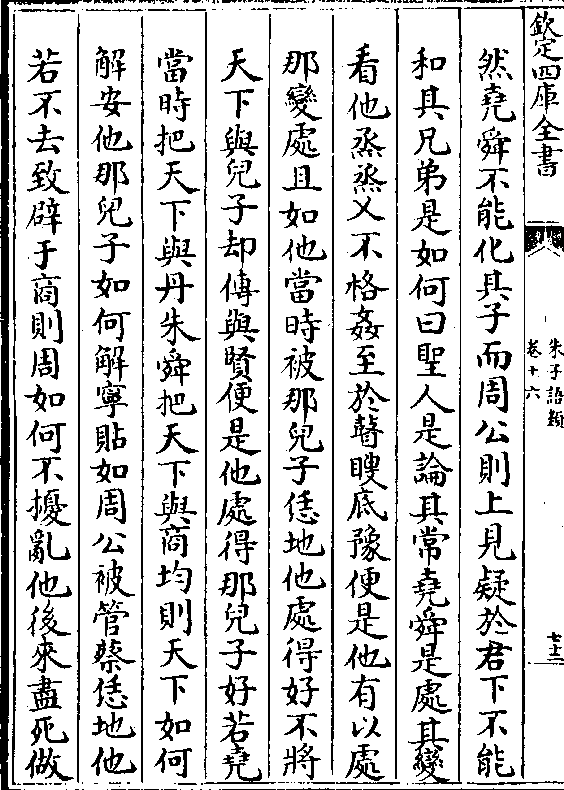 欽定四庫全書
朱子語類
卷十六
七十二
然堯舜不能化其子而周公則上見疑於君下不能
和其兄弟是如何曰聖人是論其常堯舜是處其變
看他烝烝乂不格姦至於瞽瞍底豫便是他有以處
那變處且如他當時被那兒子恁地他處得好不將
天下與兒子却傳與賢便是他處得那兒子好若堯
當時把天下與丹朱舜把天下與商均則天下如何
解安他那兒子如何解寧貼如周公被管蔡恁地他
若不去致辟于商則周如何不擾亂他後來盡死做